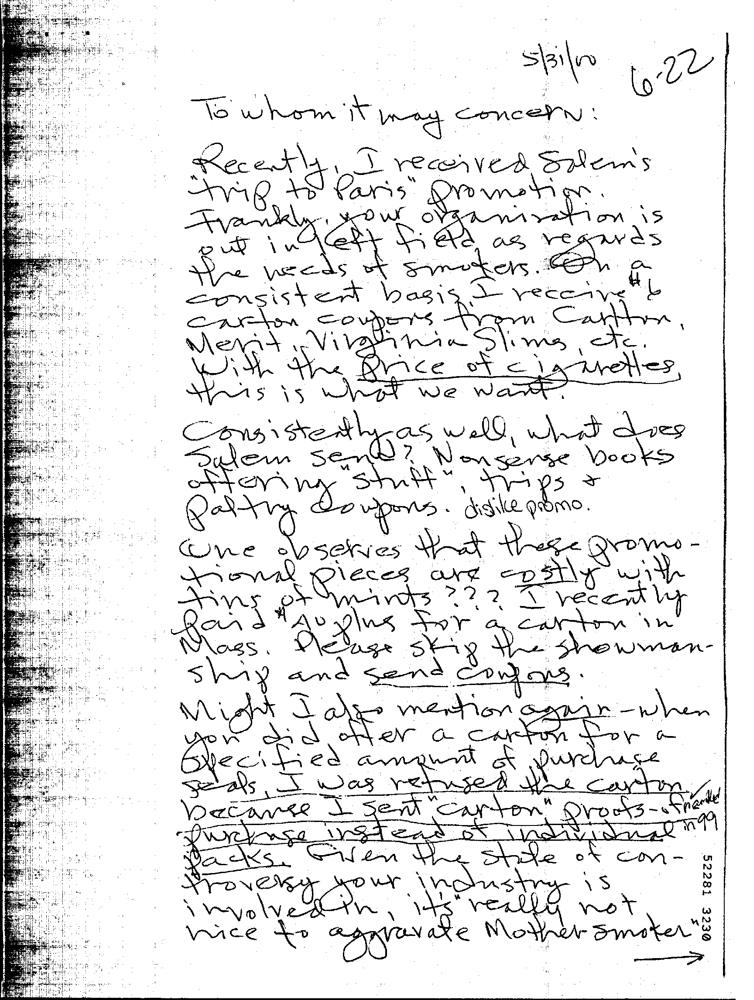 5/31/00
6-22
To whom it may concern:
Recently, I received Salem's
"trip to Paris" promotion.
Frankly, your organisation is
out in left field as regards
the needs of smokers. On a
consistent basis, I receive $6
carton coupons from Carlton,
Merit, Virginia Slims, etc.
With the price of cigarettes,
this is what we want.
Consistently as well, what does
Salem send? Nonsense books
offering "stuff", trips &
paltry coupons. dislike promo.
One observes that these promo-
tional pieces are costly with
tins of mints??? I recently
paid $40 plus for a carton in
Mass. Please skip the showman-
ship and send coupons.
Might I also mention again - when
you did offer a carton for a
specified amount of purchase
seals, I was refused the carton
because I sent "carton" proofs-of
purchase instead of individual in 99
packs. Given the state of con-
troversy your industry is
involved in, it's "really not
nice to aggravate Mother Smoker"
52281 3230